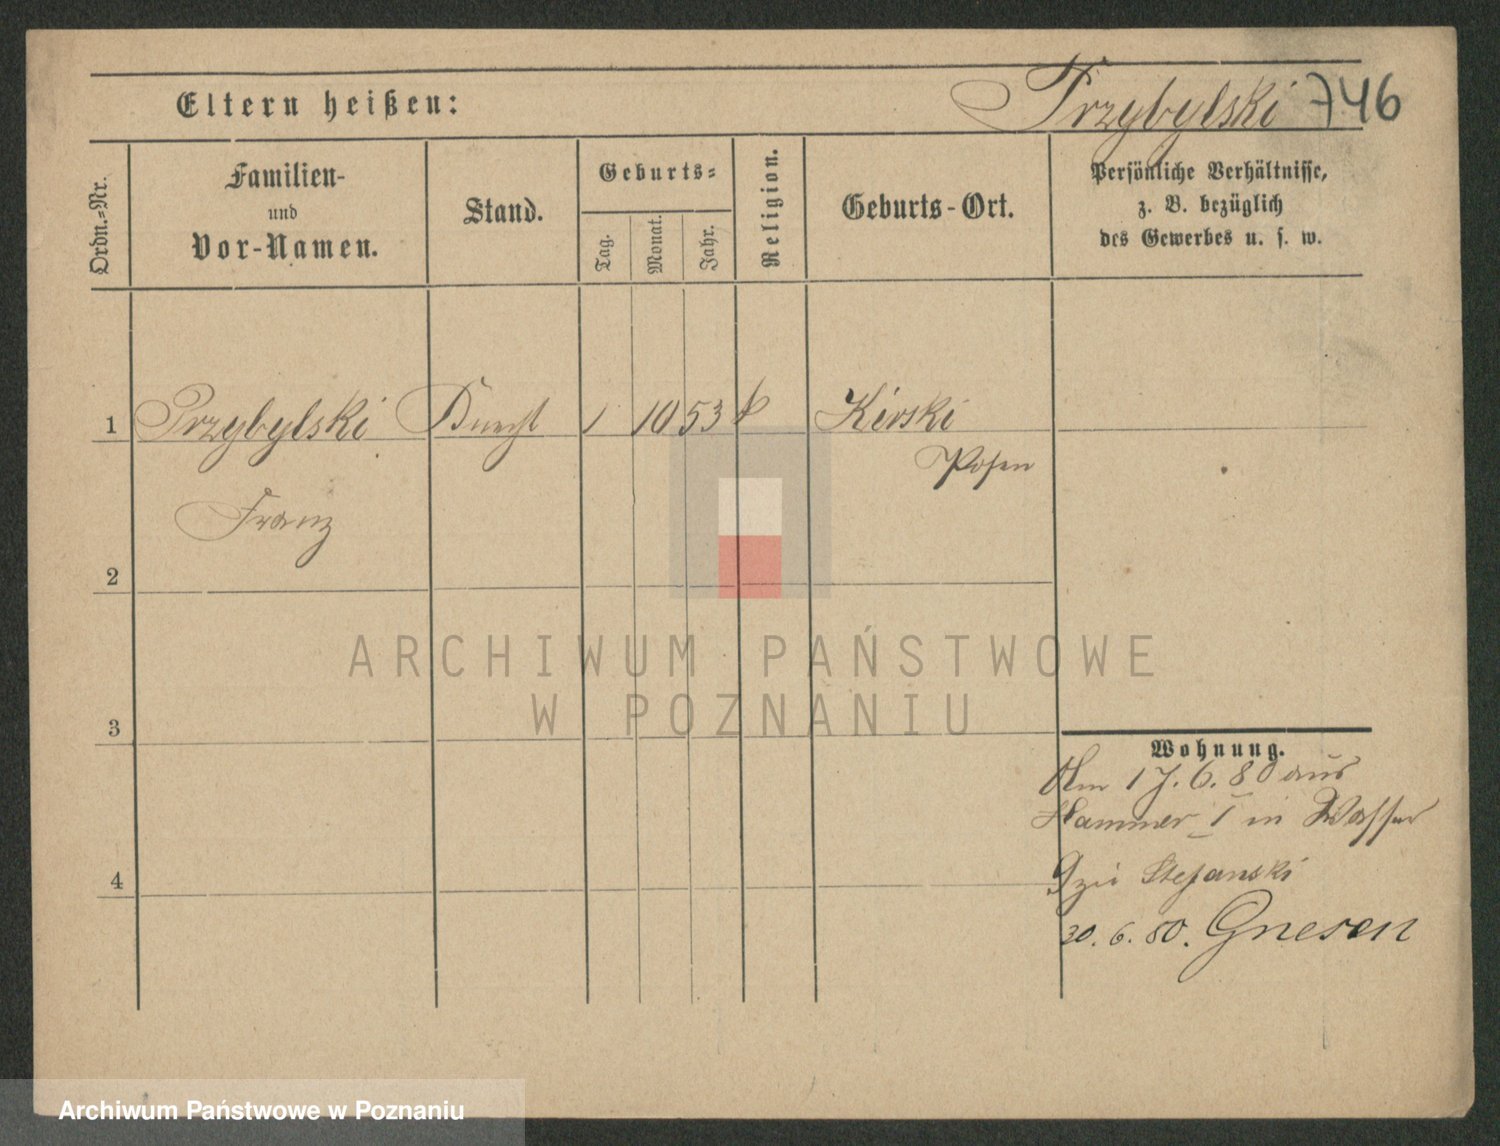 Eltern heißen:
Przybylski 746
Ordn.=Nr.
Familien-
und
Vor-Namen.
Stand.
Geburts=
Tag.
Monat.
Jahr.
Religion.
Geburts-Ort.
Persönliche Verhältnisse,
z. B. bezüglich
des Gewerbes u. s. w.
1 Przybylski Knecht 1 10 53 k Kirski
Posen
Franz
2
3
4
ARCHIWUM PAŃSTWOWE
W POZNANIU
Wohnung.
Am 17. 6. 80 aus
Hammer 1 in Wasser
bei Stefanski
30. 6. 80. Gnesen
Archiwum Państwowe w Poznaniu